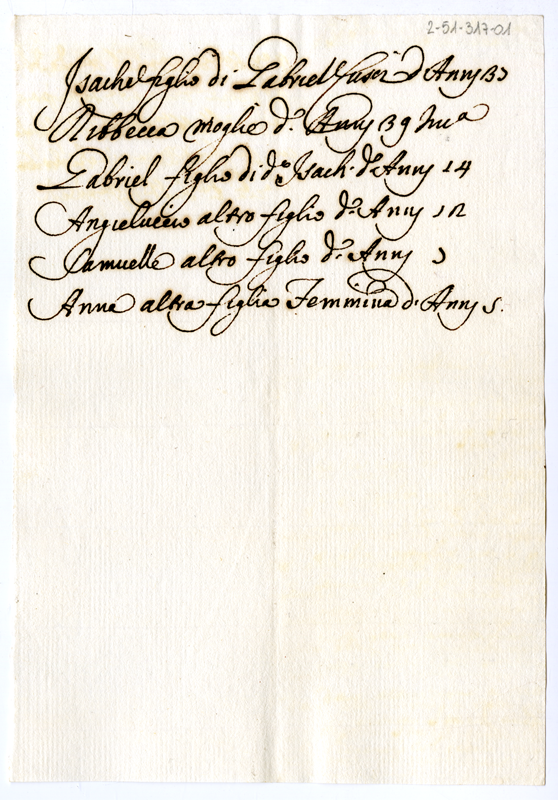 2-51-317-01
Isache figlio di Gabriel d'Anny 33
Ribbecca moglie d'. Anny 39
Gabriel figlio di dº Isach. d'Anny 14
Angieluccio altro figlio d'. Anny 12
Samuelle altro figlio d'. Anny
Anna altra figlia Femmina d'. Anny 5.